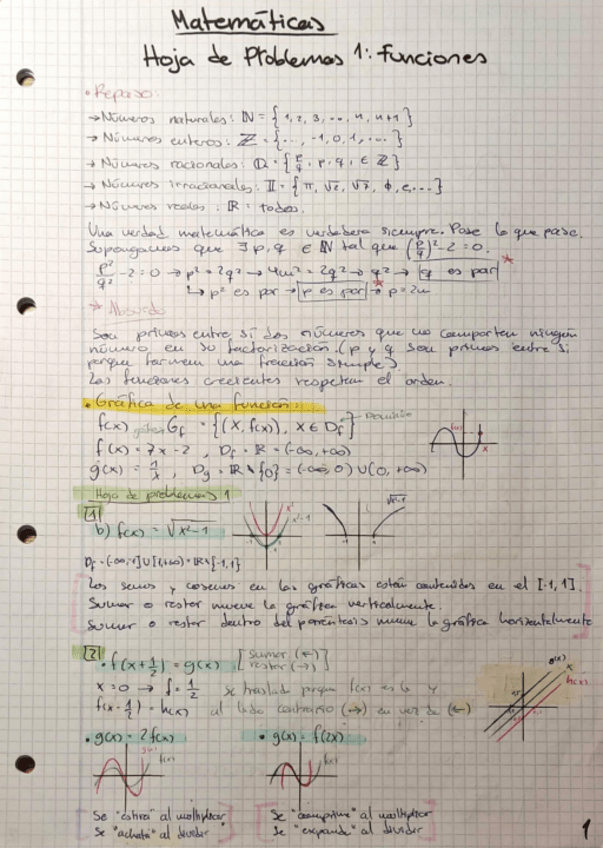 Matemáticas
Hoja de Problemas 1: Funciones
• Repaso:
→ Números naturales: ℕ = {1, 2, 3, ..., n, n+1}
→ Números enteros: ℤ = {..., -1, 0, 1, ...}
→ Números racionales: ℚ = {p/q, p, q, ∈ ℤ}
→ Números irracionales: 𝕀 = {π, √2, √7, ϕ, e, ...}
→ Números reales: ℝ = todos.
Una verdad matemática es verdadera siempre. Pase lo que pase.
Supongamos que ∃ p, q ∈ ℕ tal que (p/q)² - 2 = 0.
p²/q² - 2 = 0 → p² = 2q² → 4m² = 2q² → q² → q es par *
↳ p² es par → p es par * → p = 2m
* Absurdo
Son primos entre sí dos números que no comparten ningún
número en su factorización. (p y q son primos entre sí
porque forman una fracción simple).
Las funciones crecientes respetan el orden.
• Gráfica de una función:
f(x) Gf = {(x, f(x)), x ∈ Df} → Dominio
f(x) = 7x - 2, Df = ℝ = (-∞, +∞)
g(x) = 1/x, Dg = ℝ \ {0} = (-∞, 0) ∪ (0, +∞)
Hoja de problemas 1
1
b) f(x) = √x²-1
x²
x²-1
√x²-1
Df = (-∞, -1] ∪ [1, +∞) = ℝ \ [-1, 1}
[Los senos y cosenos en las gráficas están contenidos en el [-1, 1].
Sumar o restar mueve la gráfica verticalmente.
Sumar o restar dentro del paréntesis mueve la gráfica horizontalmente]
2
• f(x + 1/2) = g(x) [sumar (←) restar (→)]
x = 0 → f = 1/2 se traslada porque f(x) es 6 y
f(x - 1/2) = h(x) al lado contrario (→) en vez de (←)
g(x)
x
h(x)
• g(x) = 2f(x) • g(x) = f(2x)
g(x)
f(x)
f(x)
[Se "estira" al multiplicar] [Se "comprime" al multiplicar
Se "achata" al dividir Se "expande" al dividir]
1